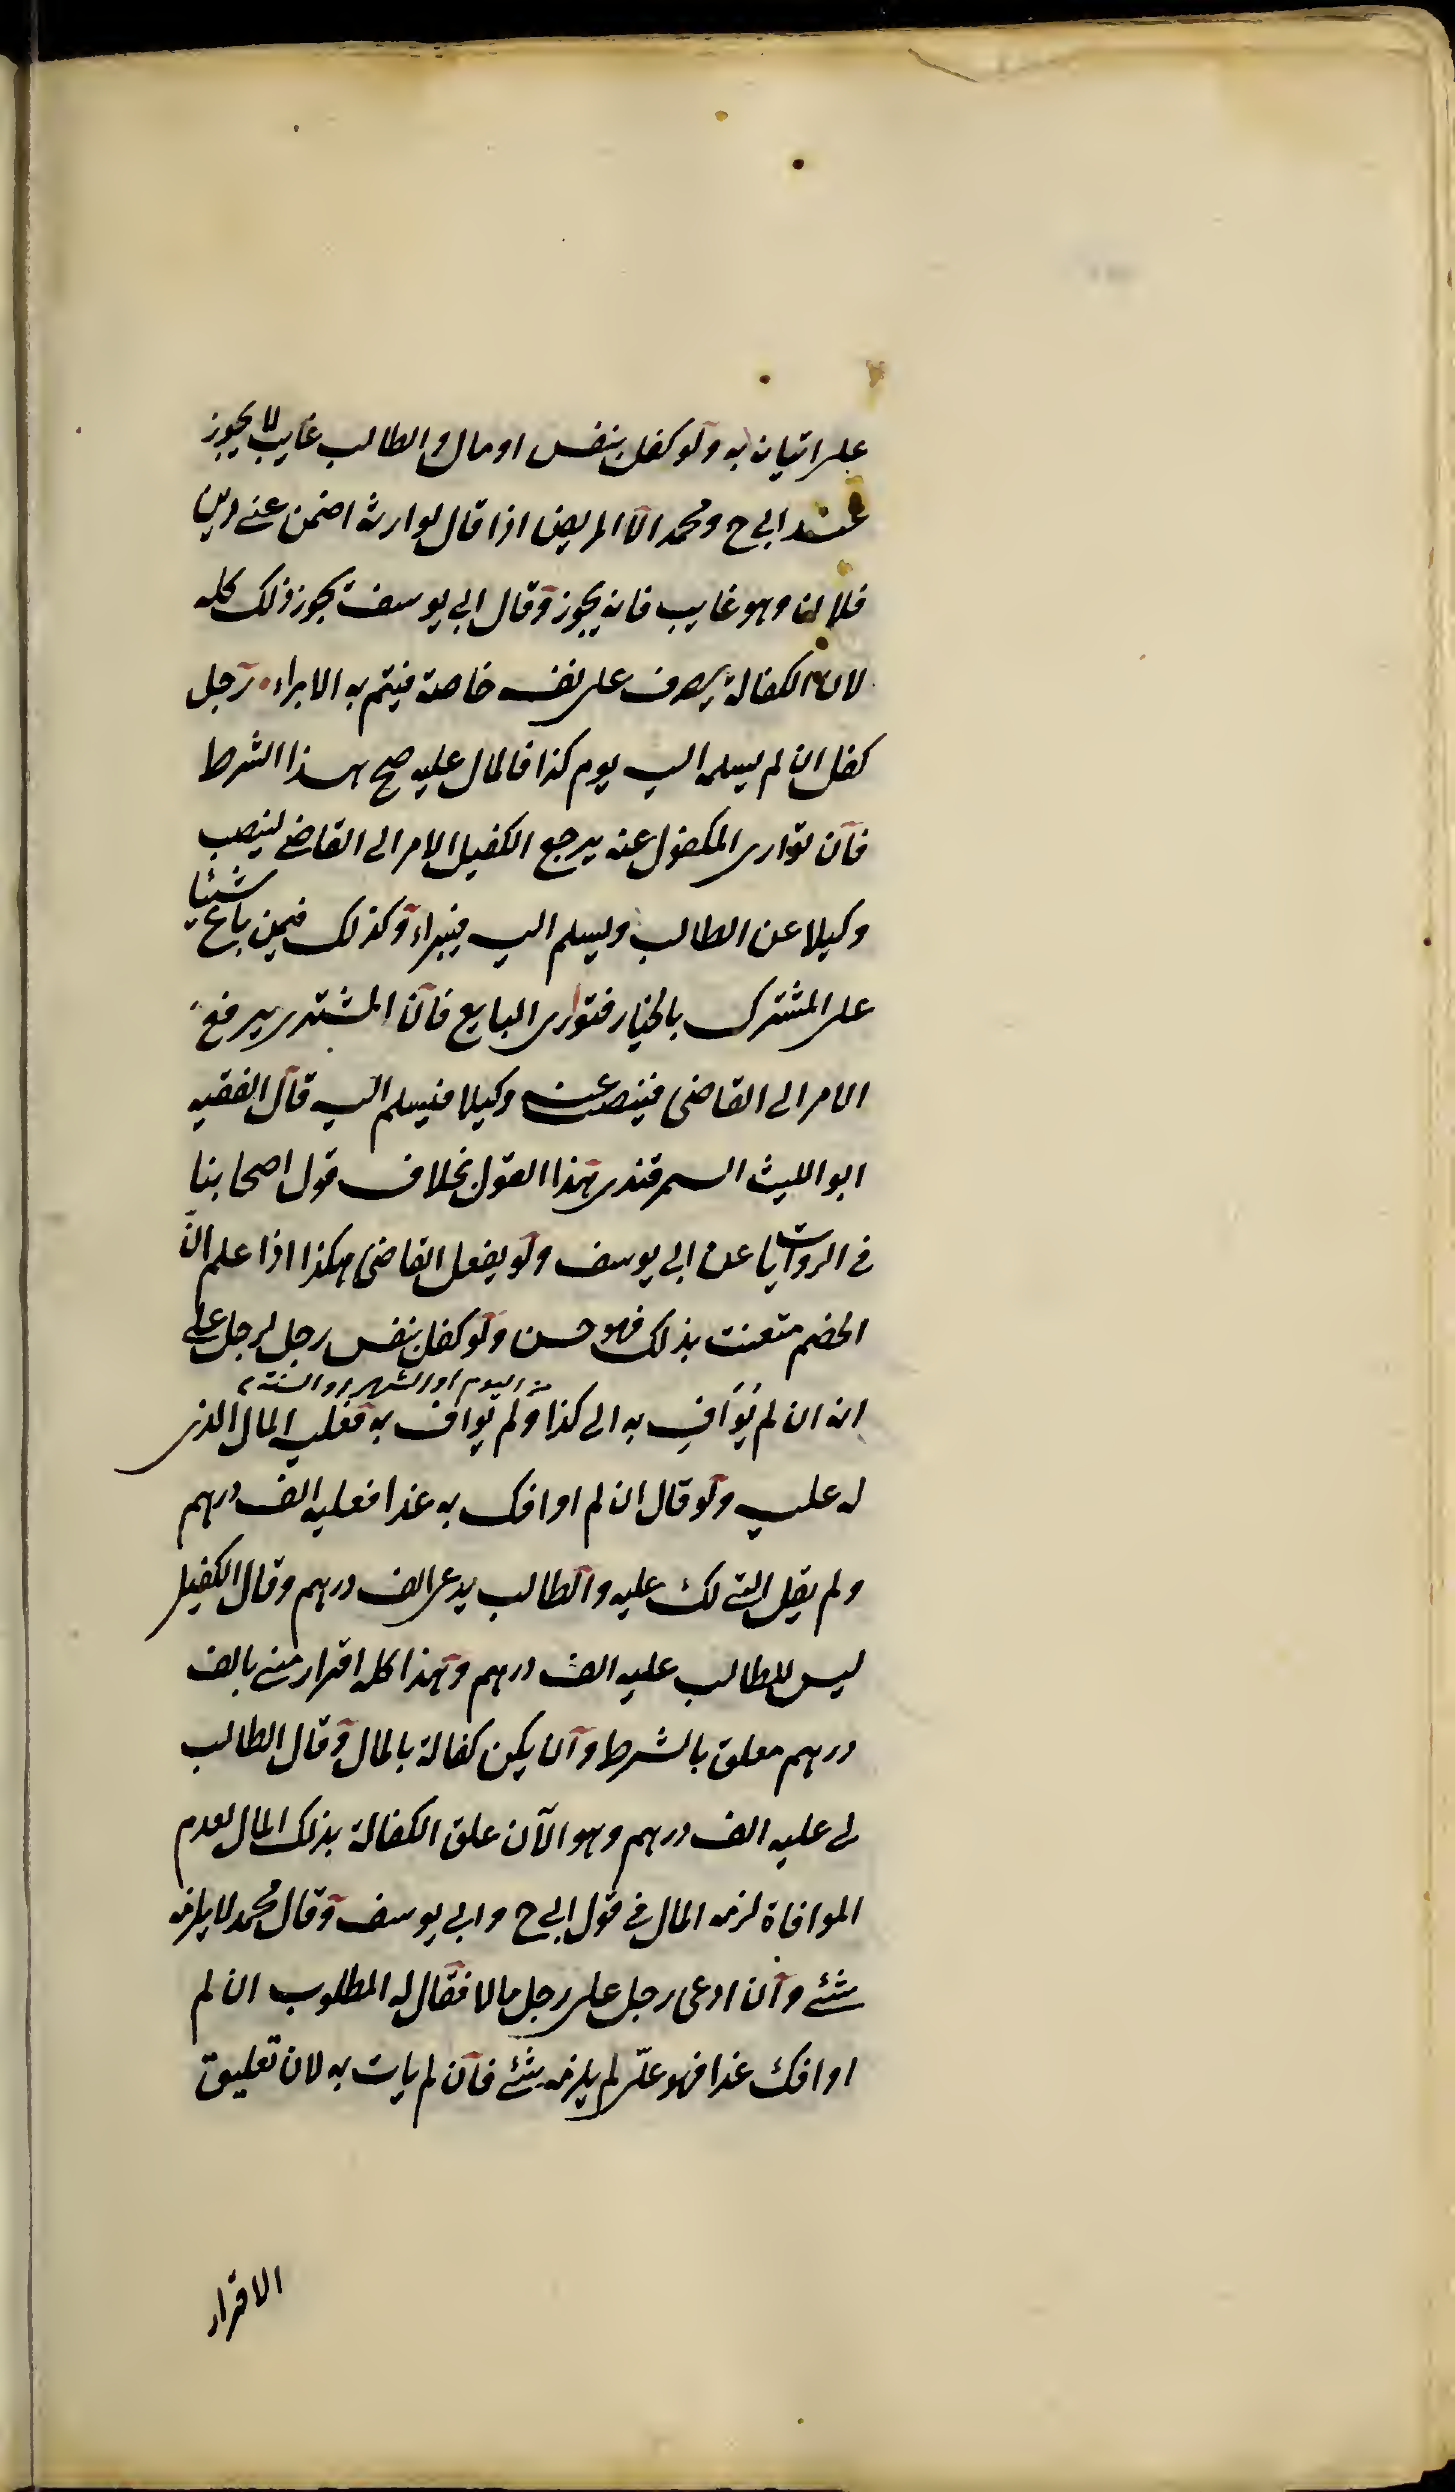 على اتيانه به ولو كفل بنفس او مال والطالب غايب لا يجوز
عند ابي ح ومحمد الا المريض اذا قال لوارثه اضمن عنى دين
فلان وهو غايب فانه يجوز وقال ابي يوسف يجوز ذلك كله
لان الكفالة تصرف على نفسه خاصة فيتم به الابراء رجل
كفل ان لم يسلمه اليه يوم كذا فالمال عليه صح بهذا الشرط
فان توارى المكفول عنه يرجع الكفيل الامر الى القاضى لينصب
وكيلا عن الطالب ويسلم اليه فيبراء وكذلك فيمن باع شيئا
على المشترى بالخيار فتوارى البايع فان المشترى يرفع
الامر الى القاضى فينصب عنه وكيلا فيسلم اليه قال الفقيه
ابو الليث السمرقندى هذا القول بخلاف قول اصحابنا
فى الروايات عن ابى يوسف ولو يفعل القاضى هكذا اذا علم ان
الخصم متعنت بذلك فهو حسن ولو كفل بنفس رجل لرجل على
من اليوم او الشهر او السنة
انه ان لم يواف به الى كذا ولم يواف به فعليه المال الذى
له عليه ولو قال ان لم اوافك به غدا فعليه الف درهم
ولم يقل التى لك عليه والطالب يدعى الف درهم وقال الكفيل
ليس للطالب عليه الف درهم وهذا كله اقرار منى بالف
درهم معلق بالشرط وان يكن كفالة بالمال وقال الطالب
لى عليه الف درهم وهو الآن علق الكفالة بذلك المال لعدم
الموافاة لزمه المال فى قول ابى ح وابى يوسف وقال محمد لا يلزمه
شئ وان ادعى رجل على رجل مالا فقال له المطلوب ان لم
اوافك غدا فهو علىّ لم يلزمه شئ فان لم يات به لان تعليق
الاقرار